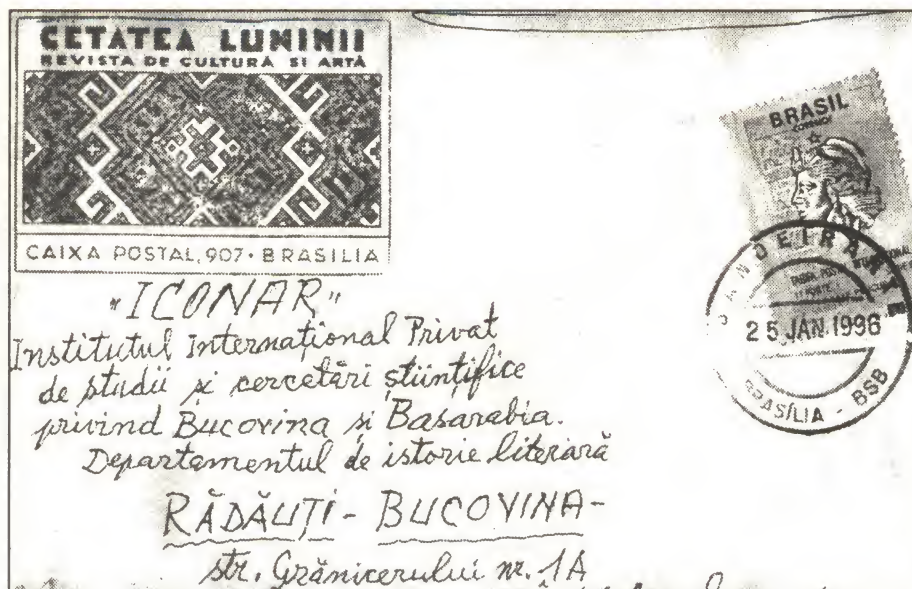 CETATEA LUMINII
REVISTA DE CULTURĂ SI ARTĂ
CAIXA POSTAL, 907 · BRASILIA
BRASIL
BANDEIRANTE
25 JAN. 1996
BRASÍLIA - BSB
"ICONAR"
Institutul Internațional Privat
de studii și cercetări științifice
privind Bucovina și Basarabia.
Departamentul de istorie literară
RĂDĂUȚI - BUCOVINA -
str. Grănicerului nr. 1A